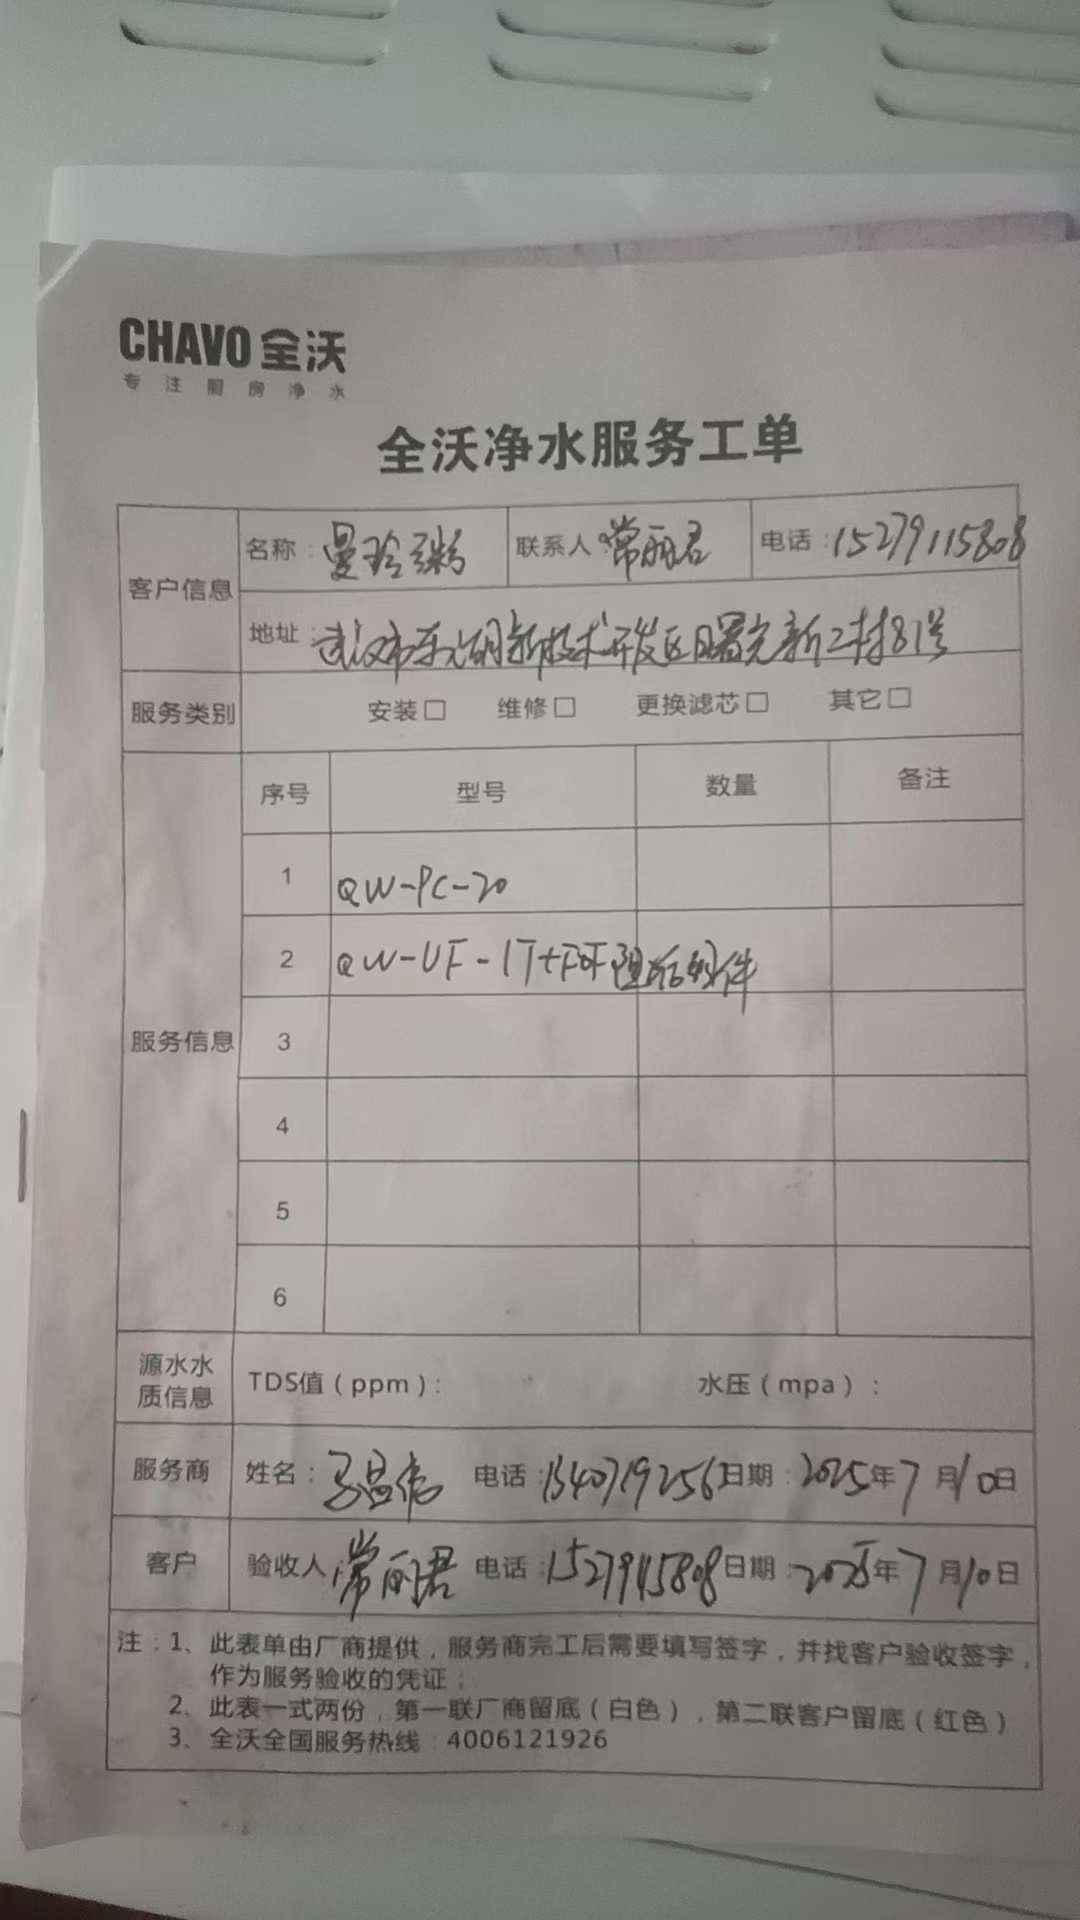 CHAVO 全沃
专注厨房净水
全沃净水服务工单
客户信息 名称： 曼玲粥 联系人：常丽君 电话：15279115808
地址：武汉市东湖新技术开发区曙光新二村81号
服务类别 安装□ 维修□ 更换滤芯□ 其它□
服务信息 序号 型号 数量 备注
1 QW-PC-20
2 QW-UF-1T+ 阻垢组件
3
4
5
6
源水水质信息 TDS值（ppm）： 水压（mpa）：
服务商 姓名： 电话： 日期：2025年7月10日
客户 验收人 常丽君 电话：15279115808 日期：2025年7月10日
注：1、此表单由厂商提供，服务商完工后需要填写签字，并找客户验收签字，
作为服务验收的凭证；
2、此表一式两份，第一联厂商留底（白色），第二联客户留底（红色）
3、全沃全国服务热线：4006121926